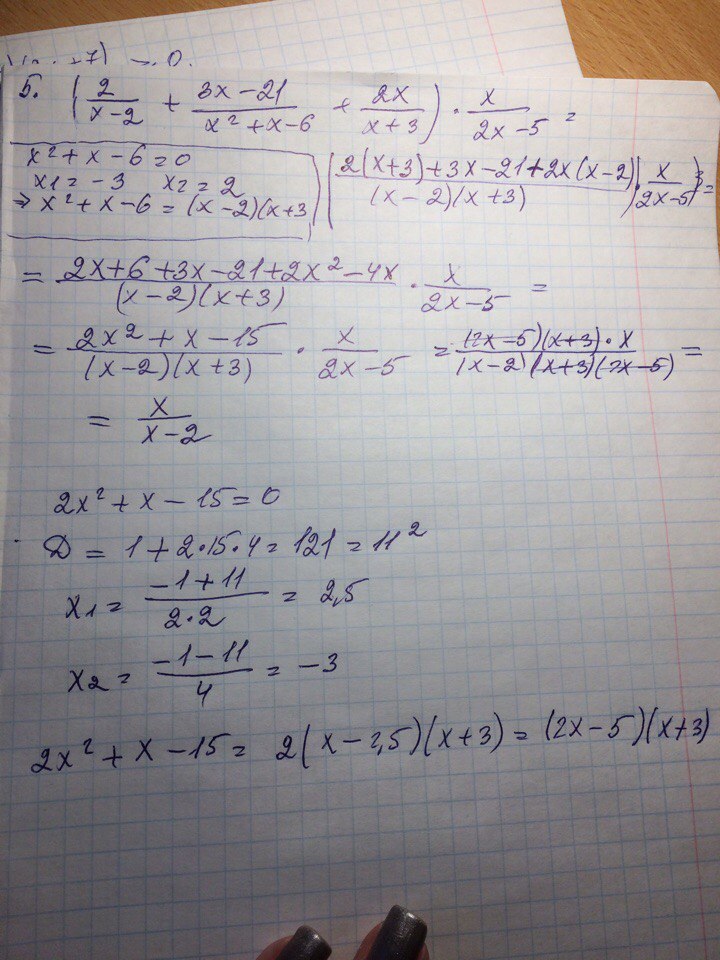 7) → 0.
5. (2/(x-2) + (3x-21)/(x²+x-6) + 2x/(x+3)) · x/(2x-5) =
x²+x-6=0
x1=-3 x2=2
⇒ x²+x-6=(x-2)(x+3
((2(x+3)+3x-21+2x(x-2))/((x-2)(x+3))) · x/(2x-5) =
= (2x+6+3x-21+2x²-4x)/((x-2)(x+3)) · x/(2x-5) =
= (2x²+x-15)/((x-2)(x+3)) · x/(2x-5) = ((2x-5)(x+3)·x)/((x-2)(x+3)(2x-5)) =
= x/(x-2)
2x²+x-15=0
D = 1+2·15·4=121=11²
x1= (-1+11)/(2·2) = 2,5
x2 = (-1-11)/4 = -3
2x²+x-15= 2(x-2,5)(x+3)=(2x-5)(x+3)